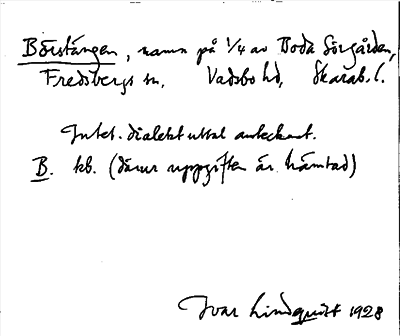 Börstången, namn på 1/4 av Boda Sörgården,
Fredsbergs sn, Vadsbo hd, Skarab. l.
Intet dialektuttal antecknat.
B. kb. (därur uppgiften är hämtad)
Ivar Lindquist 1928